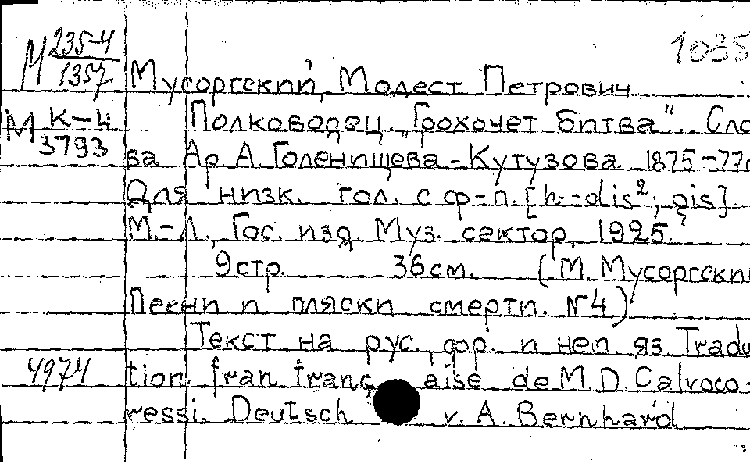 1035
М 235-4/1357 Мусоргский, Модест Петрович
М К-4/3793 Полководец „Грохочет битва". Сло
ва Ар. А. Голенищева-Кутузова 1875-77г
Для низк. гол. с ф-п. [h-dis², gis]
М.-Л., Гос. изд. Муз. сектор, 1925.
9 стр. 36 см. (М. Мусоргский
Песни и пляски смерти. №4)
Текст на рус., фр. и неп яз. Tradu
4974 tion fran franç aise de M. D. Calvoco-
ressi. Deutsch v. A. Bernhard